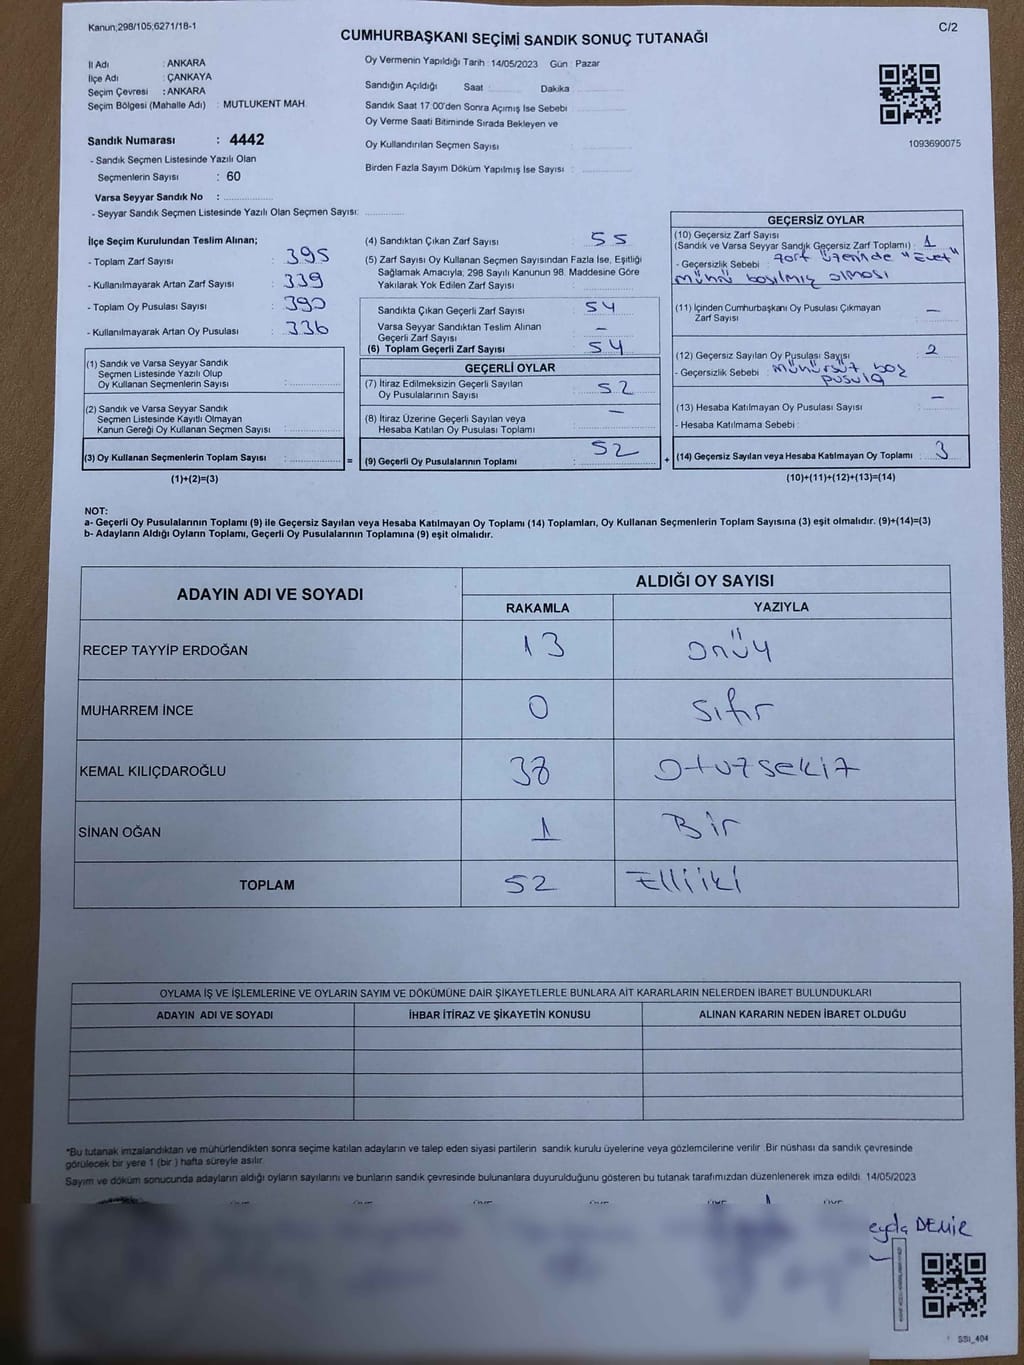 Kanun;298/105;6271/18-1
C/2
CUMHURBAŞKANI SEÇİMİ SANDIK SONUÇ TUTANAĞI
İl Adı : ANKARA
İlçe Adı : ÇANKAYA
Seçim Çevresi : ANKARA
Seçim Bölgesi (Mahalle Adı) : MUTLUKENT MAH.
Sandık Numarası : 4442
- Sandık Seçmen Listesinde Yazılı Olan
Seçmenlerin Sayısı : 60
Varsa Seyyar Sandık No :
- Seyyar Sandık Seçmen Listesinde Yazılı Olan Seçmen Sayısı:
Oy Vermenin Yapıldığı Tarih : 14/05/2023 Gün : Pazar
Sandığın Açıldığı Saat Dakika
Sandık Saat 17:00'den Sonra Açımış İse Sebebi
Oy Verme Saati Bitiminde Sırada Bekleyen ve
Oy Kullandırılan Seçmen Sayısı :
Birden Fazla Sayım Döküm Yapılmış İse Sayısı :
1093690075
İlçe Seçim Kurulundan Teslim Alınan;
- Toplam Zarf Sayısı : 395
- Kullanılmayarak Artan Zarf Sayısı : 339
- Toplam Oy Pusulası Sayısı : 390
- Kullanılmayarak Artan Oy Pusulası : 336
(1) Sandık ve Varsa Seyyar Sandık
Seçmen Listesinde Yazılı Olup
Oy Kullanan Seçmenlerin Sayısı :
(2) Sandık ve Varsa Seyyar Sandık
Seçmen Listesinde Kayıtlı Olmayan
Kanun Gereği Oy Kullanan Seçmen Sayısı :
(3) Oy Kullanan Seçmenlerin Toplam Sayısı : =
(1)+(2)=(3)
(4) Sandıktan Çıkan Zarf Sayısı : 55
(5) Zarf Sayısı Oy Kullanan Seçmen Sayısından Fazla İse, Eşitliği
Sağlamak Amacıyla; 298 Sayılı Kanunun 98. Maddesine Göre
Yakılarak Yok Edilen Zarf Sayısı :
Sandıkta Çıkan Geçerli Zarf Sayısı : 54
Varsa Seyyar Sandıktan Teslim Alınan
Geçerli Zarf Sayısı : –
(6) Toplam Geçerli Zarf Sayısı : 54
GEÇERLİ OYLAR
(7) İtiraz Edilmeksizin Geçerli Sayılan
Oy Pusulalarının Sayısı : 52
(8) İtiraz Üzerine Geçerli Sayılan veya
Hesaba Katılan Oy Pusulası Toplamı : –
(9) Geçerli Oy Pusulalarının Toplamı : 52 +
GEÇERSİZ OYLAR
(10) Geçersiz Zarf Sayısı
(Sandık ve Varsa Seyyar Sandık Geçersiz Zarf Toplamı) : 1
- Geçersizlik Sebebi : Zarf üzerinde "Evet"
mührü basılmış olması
(11) İçinden Cumhurbaşkanı Oy Pusulası Çıkmayan
Zarf Sayısı : –
(12) Geçersiz Sayılan Oy Pusulası Sayısı : 2
- Geçersizlik Sebebi : mühürsüz, boş
pusula
(13) Hesaba Katılmayan Oy Pusulası Sayısı : –
- Hesaba Katılmama Sebebi :
(14) Geçersiz Sayılan veya Hesaba Katılmayan Oy Toplamı : 3
(10)+(11)+(12)+(13)=(14)
NOT:
a- Geçerli Oy Pusulalarının Toplamı (9) ile Geçersiz Sayılan veya Hesaba Katılmayan Oy Toplamı (14) Toplamları, Oy Kullanan Seçmenlerin Toplam Sayısına (3) eşit olmalıdır. (9)+(14)=(3)
b- Adayların Aldığı Oyların Toplamı, Geçerli Oy Pusulalarının Toplamına (9) eşit olmalıdır.
ADAYIN ADI VE SOYADI
ALDIĞI OY SAYISI
RAKAMLA YAZIYLA
RECEP TAYYİP ERDOĞAN 13 Onüç
MUHARREM İNCE 0 Sıfır
KEMAL KILIÇDAROĞLU 38 Otuzsekiz
SİNAN OĞAN 1 Bir
TOPLAM 52 Elliiki
OYLAMA İŞ VE İŞLEMLERİNE VE OYLARIN SAYIM VE DÖKÜMÜNE DAİR ŞİKAYETLERLE BUNLARA AİT KARARLARIN NELERDEN İBARET BULUNDUKLARI
ADAYIN ADI VE SOYADI İHBAR İTİRAZ VE ŞİKAYETİN KONUSU ALINAN KARARIN NEDEN İBARET OLDUĞU
*Bu tutanak imzalandıktan ve mühürlendikten sonra seçime katılan adayların ve talep eden siyasi partilerin sandık kurulu üyelerine veya gözlemcilerine verilir. Bir nüshası da sandık çevresinde
görülecek bir yere 1 (bir ) hafta süreyle asılır.
Sayım ve döküm sonucunda adayların aldığı oyların sayılarını ve bunların sandık çevresinde bulunanlara duyurulduğunu gösteren bu tutanak tarafımızdan düzenlenerek imza edildi. 14/05/2023
eyda DEMİR
SSI_404